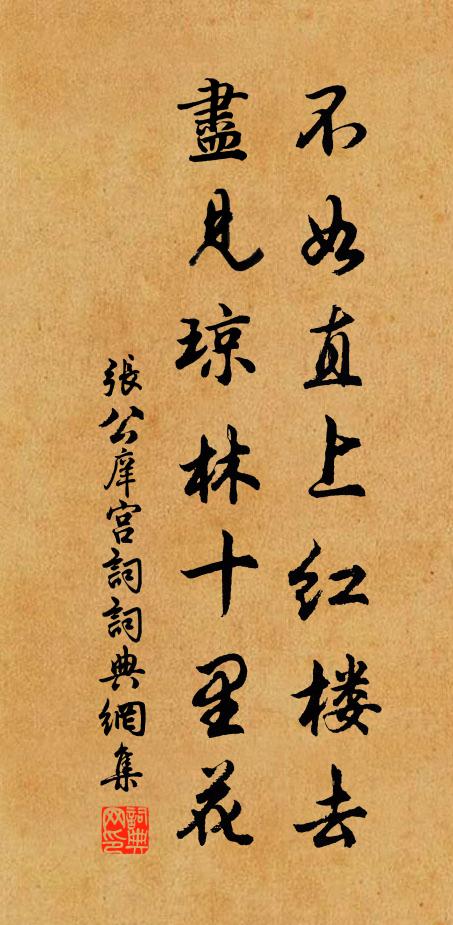 不如直上红楼去
盡見琼林十里花
張公庠宫詞詞典網集
詞典网印